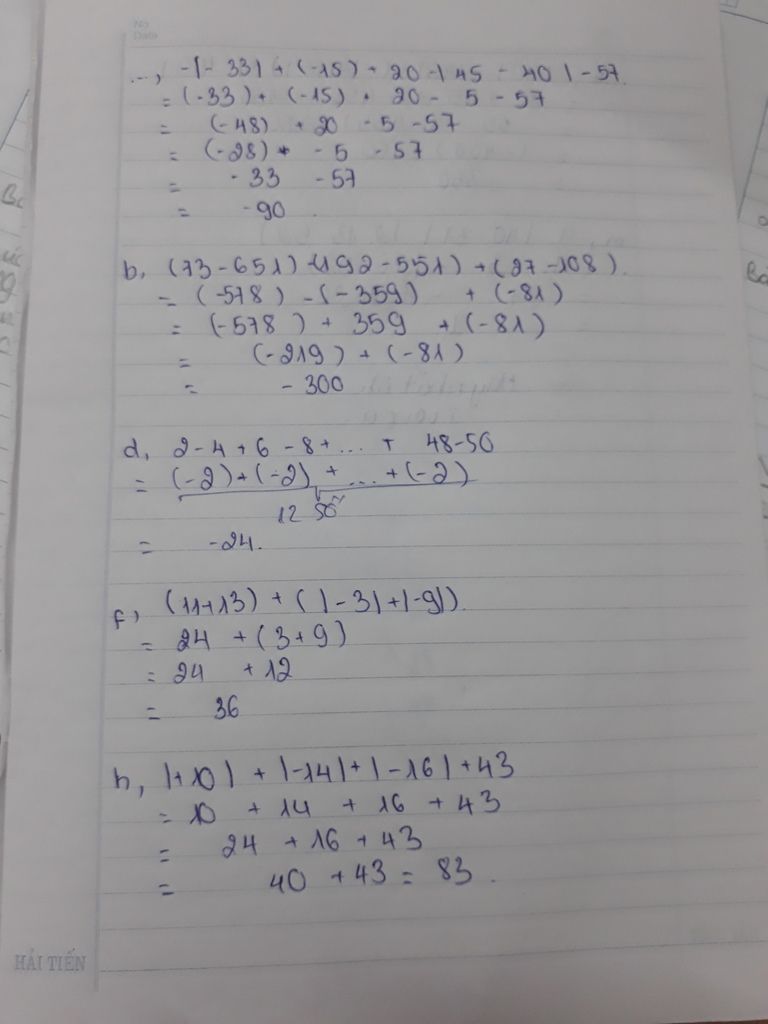 No
Date
..., -|-33| + (-15) + 20 -|45 - 40| - 57
= (-33) + (-15) + 20 - 5 - 57
= (-48) + 20 - 5 - 57
= (-28) - 5 - 57
= -33 - 57
= -90
b, (73-651) -(192-551) + (27-108)
= (-578) - (-359) + (-81)
= (-578) + 359 + (-81)
= (-219) + (-81)
= -300
d, 2-4+6-8+...+ 48-50
= (-2)+(-2) + ... +(-2)
12 số
= -24.
f, (11+13) + (|-3|+|-9|)
= 24 + (3+9)
= 24 + 12
= 36
h, |+10| + |-14|+|-16| +43
= 10 + 14 + 16 + 43
= 24 + 16 + 43
= 40 + 43 = 83.
HẢI TIẾN